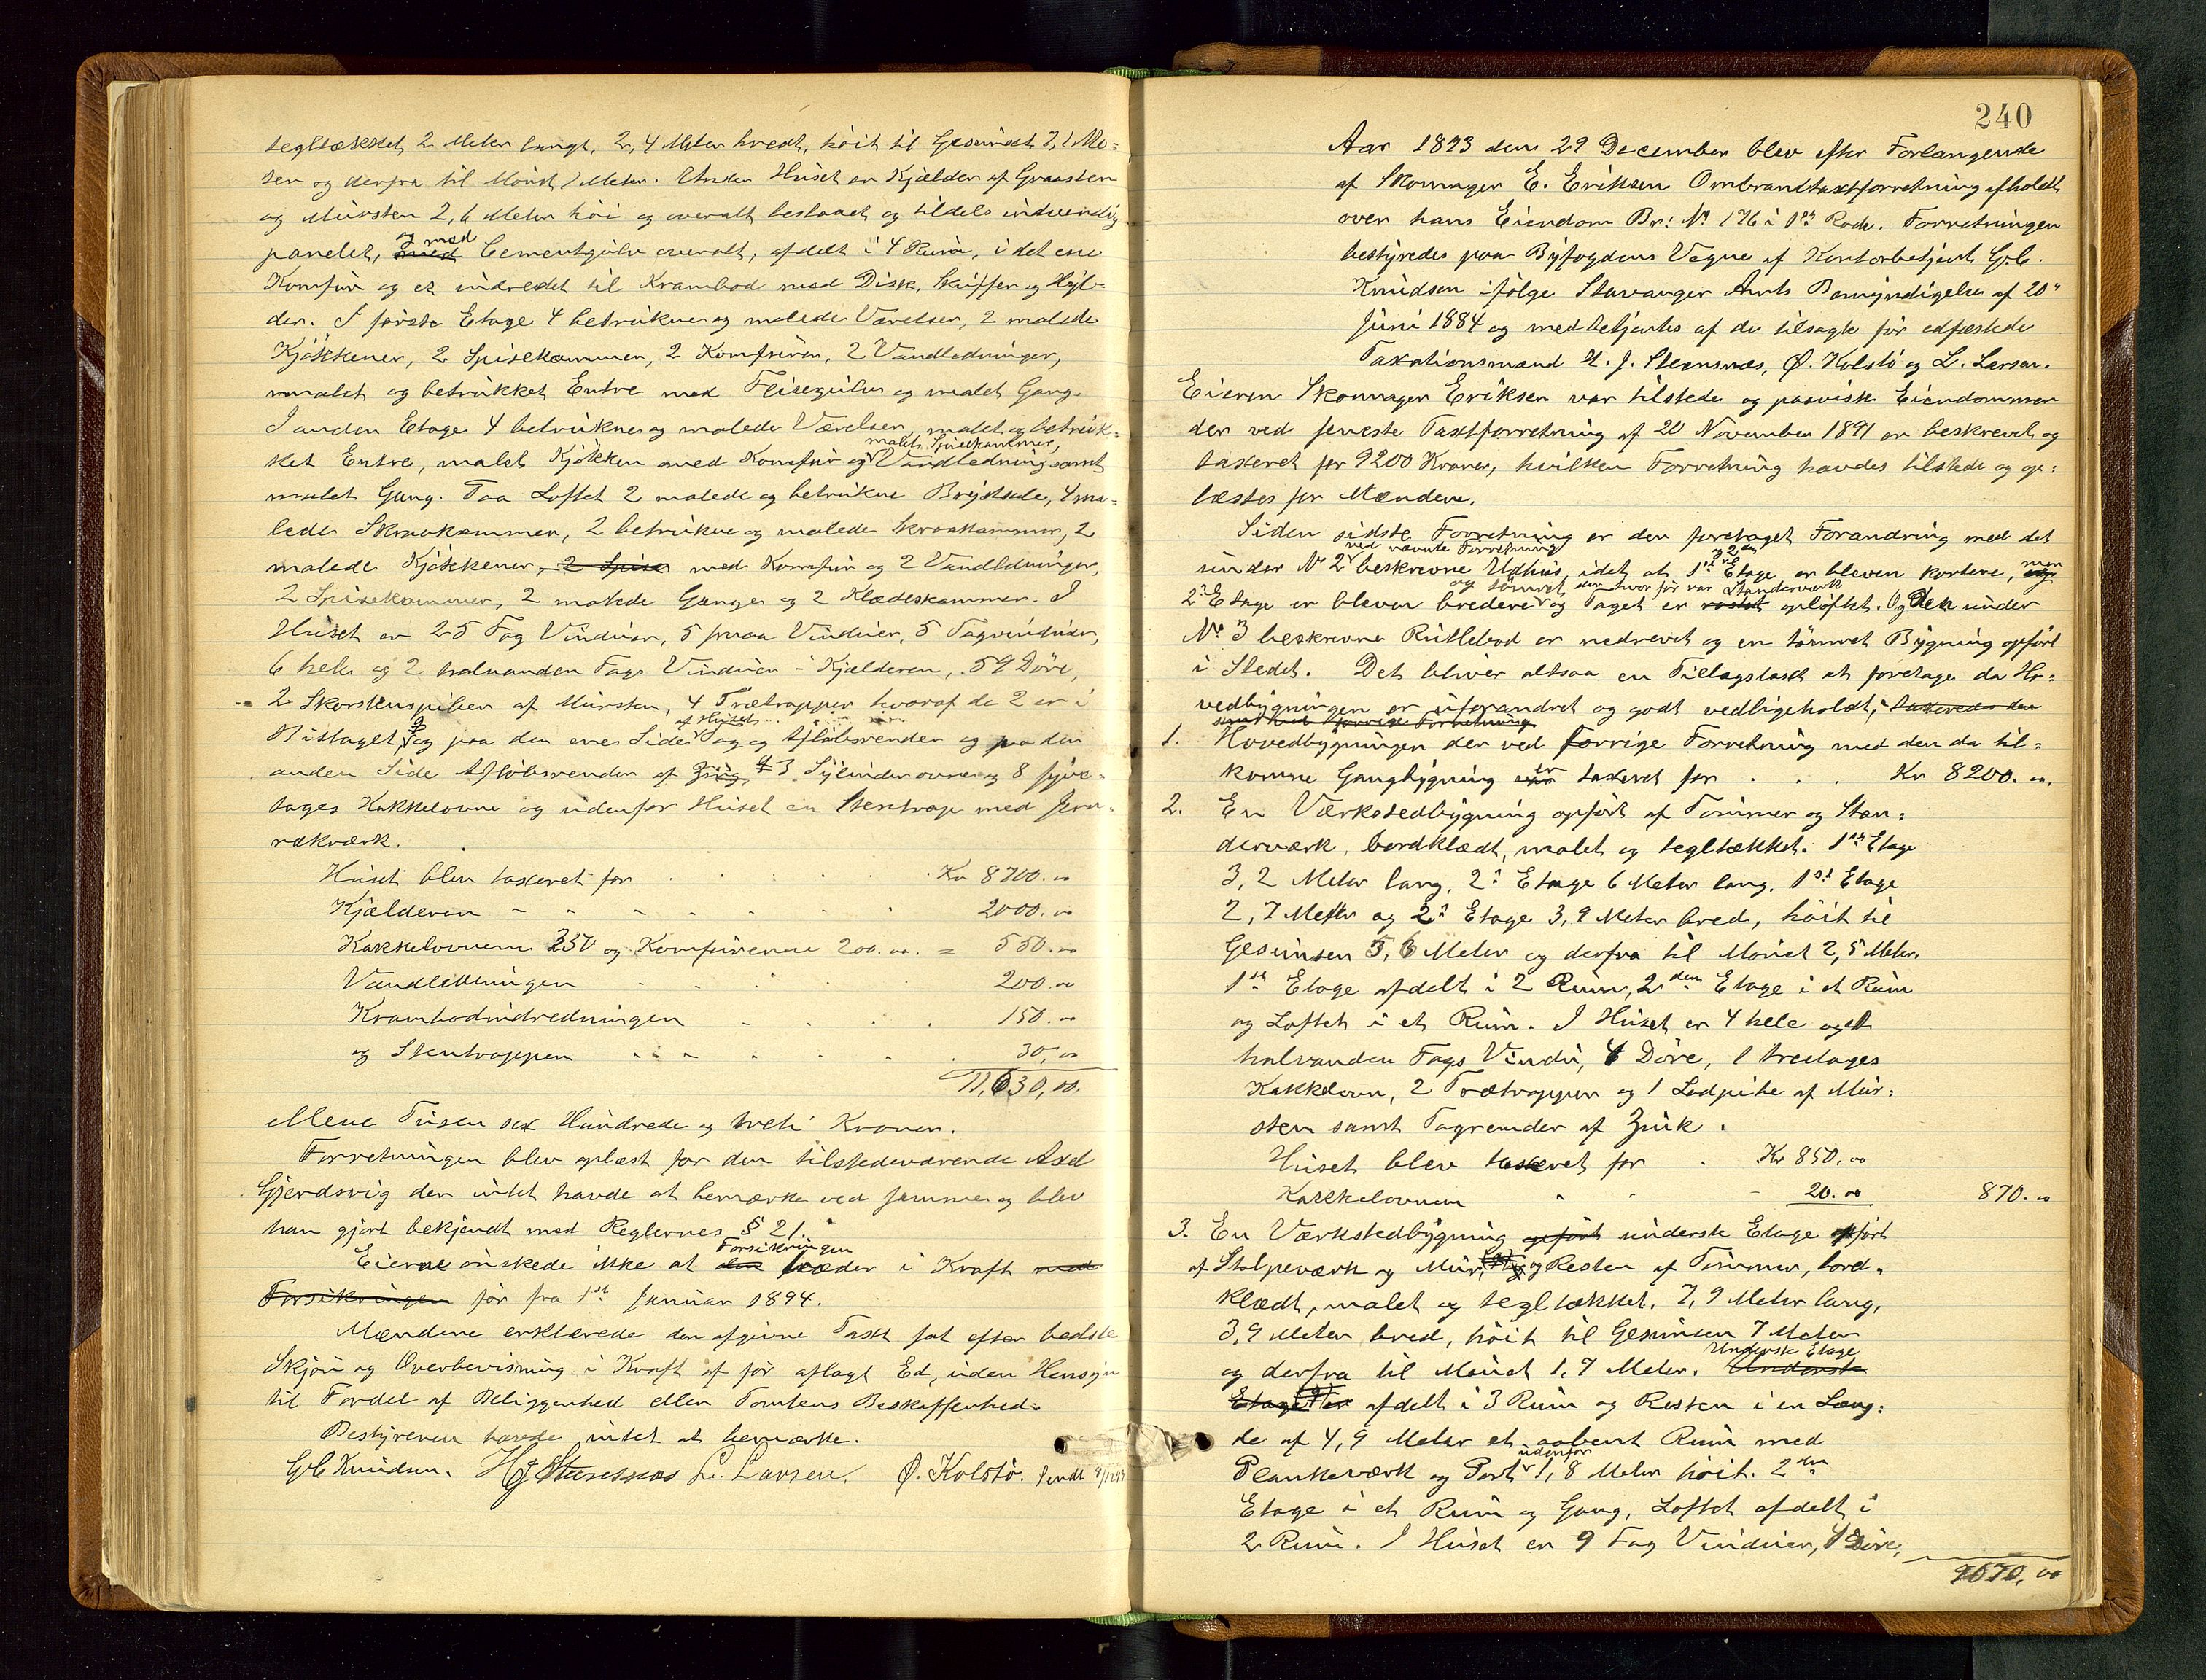 tegltækket, 2 Meter langt, 2,4 Meter bredt, høit til Gesimset 7,1 Me-
ter og derfra til Mønet 1 Meter. Under Huset er Kjælder af Graasten
og Mursten 2,6 Meter høi og overalt beslaaet og tildels indvendig
panelet, og med Cementgulv overalt, afdelt i 4 Rum, i det ene
Komfur og et indredet til Krambod med Disk, Skuffer og Hyl-
der. I første Etage 4 betrukne og malede Værelser, 2 malede
Kjøkkener, 2 Spisekammer, 2 Komfurer, 2 Vandledninger,
malet og betrukket Entre med Flisegulv og malet Gang.
I anden Etage 4 betrukne og malede Værelser, malet og betruk-
ket Entre, malet Kjøkken med Komfur og malet Spisekammer, Vandledning samt
malet Gang. Paa Loftet 2 malede og betrukne Brystsale, 4 ma-
lede Skraakammer, 2 betrukne og malede Skraakammer, 2
malede Kjøkkener, 2 Spise med Komfur og 2 Vandledninger,
2 Spisekammer, 2 malede Gange og 2 Klædeskammer. I
Huset er 25 Fag Vinduer, 5 smaa Vinduer, 5 Tagvinduer,
6 hele og 2 halvanden Fags Vinduer i Kjælderen, 59 Døre,
2 Skorstenspiber af Mursten, 4 Trætrapper hvoraf de 2 er i
Bislaget, og paa den ene Side af Huset Tag og Afløbsrender og paa den
anden Side Afløbsrender af Zink, 3 Sylinderovne og 8 fyre-
tages Kakkelovne og udenfor Huset en Stentrap med Jern-
rækværk.
Huset blev taxeret for . . . . . Kr 8700.00
Kjælderen " " " " " " 2000.00
Kakkelovnene 350 og Komfurerne 200.00. = 550.00
Vandledningen 200.00
Krambodindredningen 150.00
og Stentrappen 30,00
11,630,00.
Elleve Tusen sex Hundrede og treti Kroner.
Forretningen blev oplæst for den tilstedeværende Axel
Gjerdsvig der intet havde at bemærke ved samme og blev
han gjort bekjendt med Reglernes § 21.
Eierne ønskede ikke at den Forsikringen træder i Kraft med
Forsikringen før fra 1st Januar 1894.
Mændene erklærede den afgivne Taxt sat efter bedste
Skjøn og Overbevisning i Kraft af før aflagt Ed, uden Hensyn
til Fordel af Beliggenhed eller Tomtens Beskaffenhed.
Bestyreren havde intet at bemærke.
G. C. Knudsen. H J Stensnæs L. Larsen. Ø. Kolstø.
240
Aar 1893 den 29 December blev efter Forlangende
af Skomager E. Eriksen Ombrandtaxtforretning afholdt
over hans Eiendom Br: No 176 i 1ste Rode. Forretningen
bestyredes paa Byfogdens Vegne af Kontorbetjent G. C.
Knudsen ifølge Stavanger Amts Bemyndigelse af 20"
Juni 1884 og medbetjentes af de tilsagte før edfæstede
Taxationsmænd H. J. Stensnæs, Ø. Kolstø og L. Larsen.
Eieren Skomager Eriksen var tilstede og paaviste Eiendommen
der ved seneste Taxtforretning af 20 November 1891 er beskrevet og
taxeret for 9200 Kroner, hvilken Forretning havdes tilstede og op-
læstes for Mændene.
Siden sidste Forretning er der foretaget Forandring med det
under No 2 ved nævnte Forretning beskrevne Udhus, idet at 1st og 2den Etage er bleven kortere, men
2' Etage er bleven bredere og tømret, der hvor før var Standerværk og Taget er opløftet. Og den under
No 3 beskrevne Rullebod er nedrevet og en tømret Bygning opført
i Stedet. Det bliver altsaa en Tillægstaxt at foretage da Ho-
vedbygningen er uforandret og godt vedligeholdt, taxeredes den
som ved forrige Forretning.
1. Hovedbygningen der ved forrige Forretning med den da til-
komne Gangbygning er taxeret for . . . Kr 8200.00.
2. En Værkstedbygning opført af Tømmer og Stan-
derværk, bordklædt, malet og tegltækket. 1st Etage
3,2 Meter lang, 2' Etage 6 Meter lang, 1st Etage
2,7 Meter og 2' Etage 3,9 Meter bred, høit til
Gesimsen 5,6 Meter og derfra til Mønet 2,5 Meter.
1st Etage afdelt i 2 Rum, 2den Etage i et Rum
og Loftet i et Rum. I Huset er 4 hele og et
halvanden Fags Vindu, 4 Døre, 1 tretages
Kakkelovn, 2 Trætrapper og 1 Lodpibe af Mur-
sten samt Tagrender af Zink.
Huset blev taxeret for . Kr 850,00
Kakkelovnen " " " 20.00 870.00
3. En Værkstedbygning opført underste Etage opført
af Stolpeværk og Mur, og Resten af Tømmer, bord-
klædt, malet og tegltækket. 7,9 Meter lang,
3,9 Meter bred, høit til Gesimsen 7 Meter
og derfra til Mønet 1,7 Meter. Underste Etage Underste
Etage er afdelt i 3 Rum og Resten i en Læng-
de af 4,9 Meter et aabent Rum med
Plankeværk og Port udenfor 1,8 Meter høit. 2den
Etage i et Rum og Gang, Loftet afdelt i
2 Rum. I Huset er 9 Fag Vinduer, 4 Døre,
9070,00